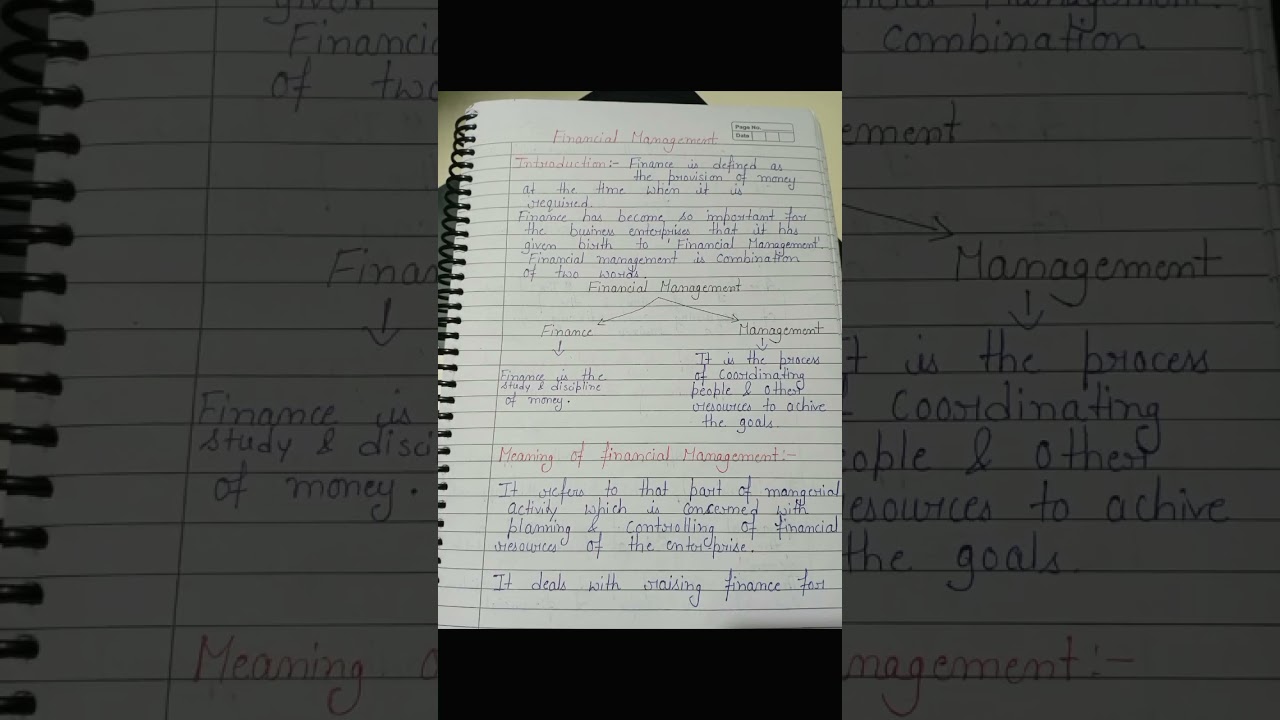 Page No.
Date
Financial Management
Introduction:- Finance is defined as
the provision of money
at the time when it is
required.
Finance has become so important for
the business enterprises that it has
given birth to 'Financial Management'.
Financial management is combination
of two words.
Financial Management
Finance
Management
Finance is the
study & discipline
of money.
It is the process
of coordinating
people & other
resources to achive
the goals.
Meaning of financial Management:-
It refers to that part of mangerial
activity which is concerned with
planning & controlling of financial
resources of the enterprise.
It deals with raising finance for